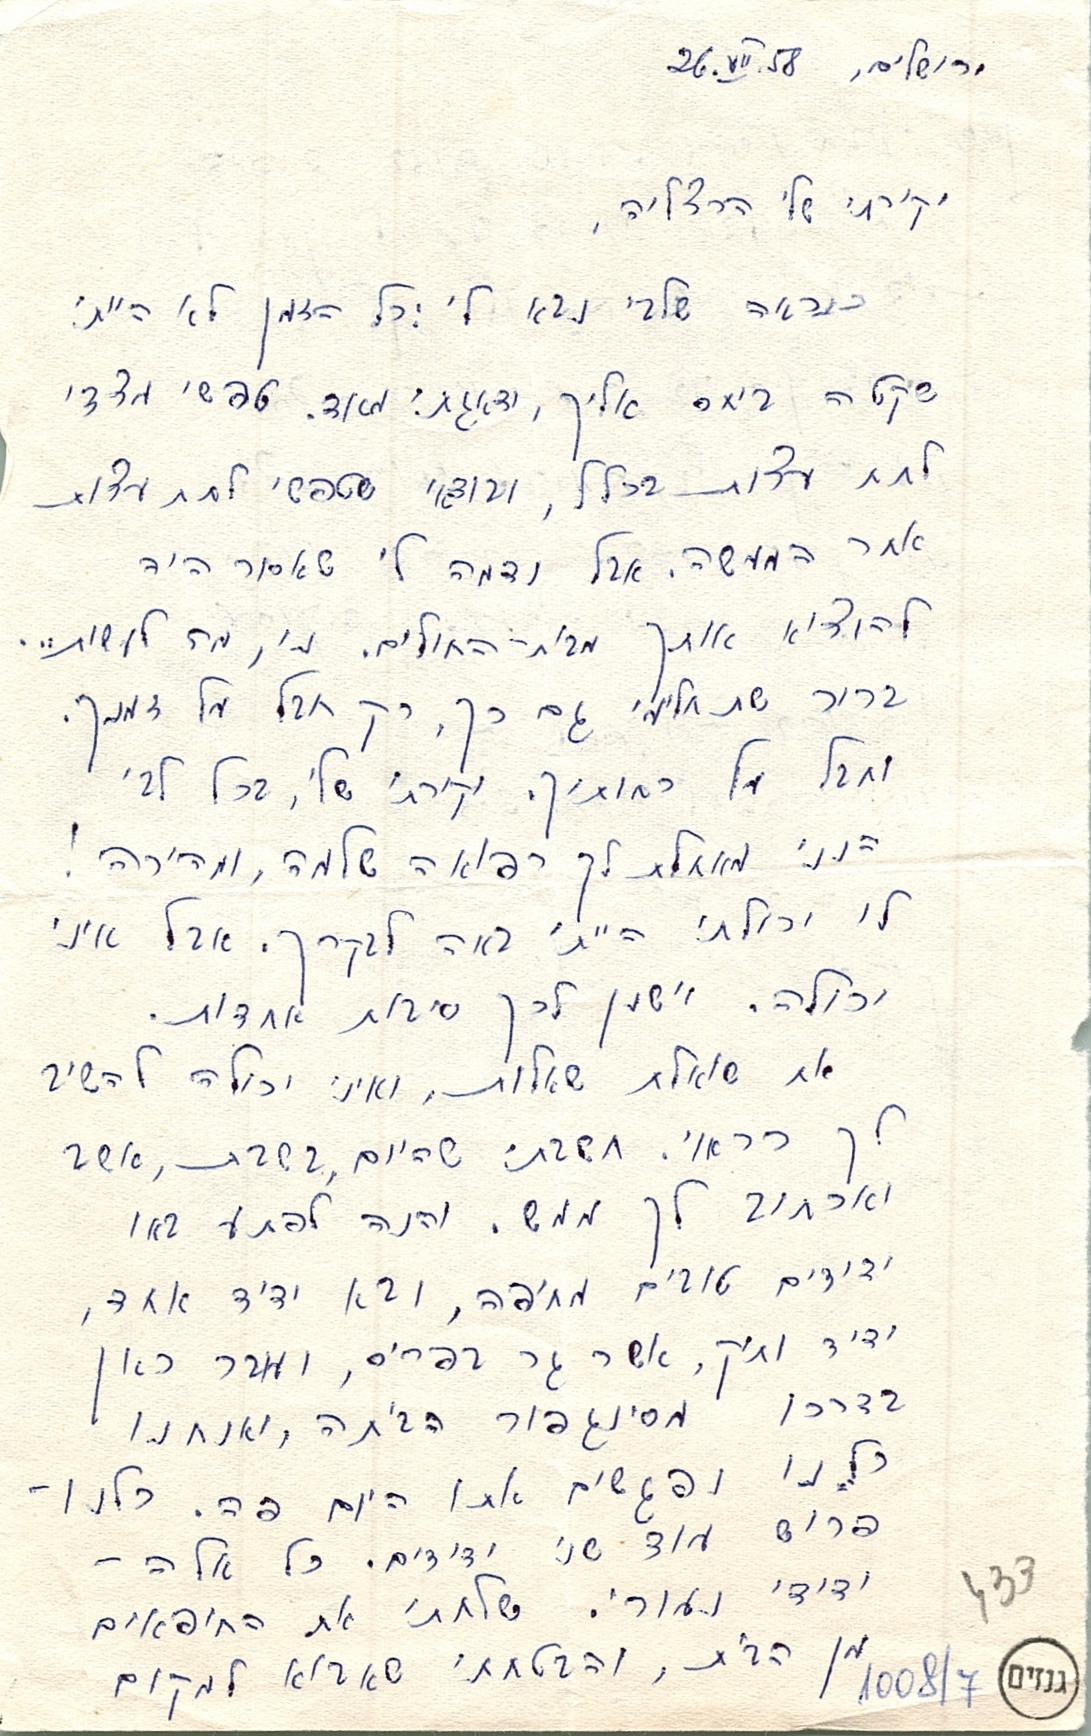 ירושלים, 26.VII.58
יקירתי שלי הרצליה,
כנראה שלבי נבא לי: כל הזמן לא הייתי
שקטה ביחס אליך, ודאגתי מאוד. טפשי מצדי
לתת עצות בכלל, ובודאי שטפשי לתת עצות
אחר המעשה. אבל נדמה לי שאסור היה
להוציא אותך מבית-החולים. נו, מה לעשות...
ברור שתחלימי גם כך, רק חבל על זמנך.
וחבל על כחותיך. יקירתי שלי, בכל לבי
הנני מאחלת לך רפואה שלמה, ומהירה!
לו יכולתי הייתי באה לבקרך. אבל איני
יכולה. וישנן לכך סיבות אחדות.
את שואלת שאלות, ואיני יכולה להשיב
לך כראוי. חשבתי שהיום, בשבת, אשב
ואכתוב לך ממש. והנה לפתע באו
ידידים טובים מחיפה, ובא ידיד אחד,
ידיד ותיק, אשר גר בפריס, ועבר כאן
בדרכו מסינגפור הביתה, ואנחנו
כלנו נפגשים אתו היום פה. כלנו -
פרוש עוד שני ידידים. כל אלה -
ידידי נעורי. שלחתי את החיפאים
מן הבית, והבטחתי שאבוא למקום
433
1008/7
גנזים